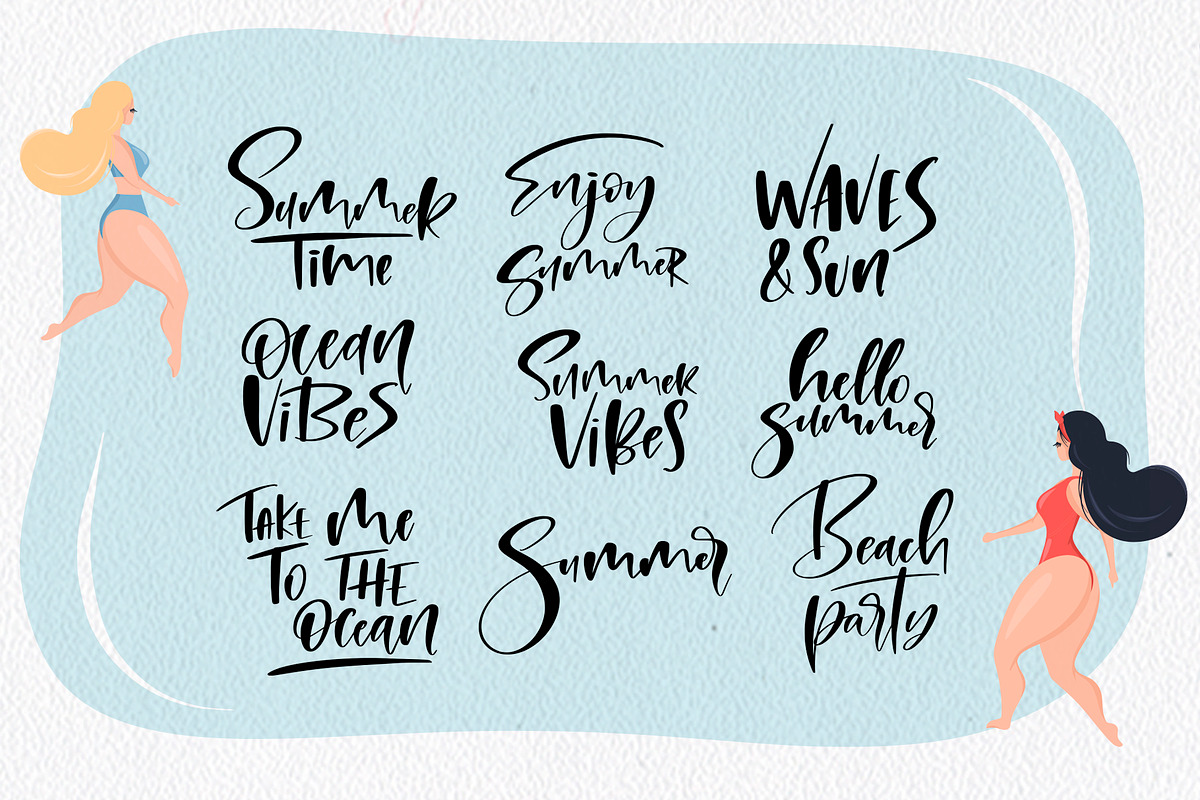 Summer
Time
Enjoy
Summer
WAVES
& Sun
Ocean
ViBes
Summer
ViBes
hello
summer
TAKE Me
To THE
Ocean
Summer
Beach
party